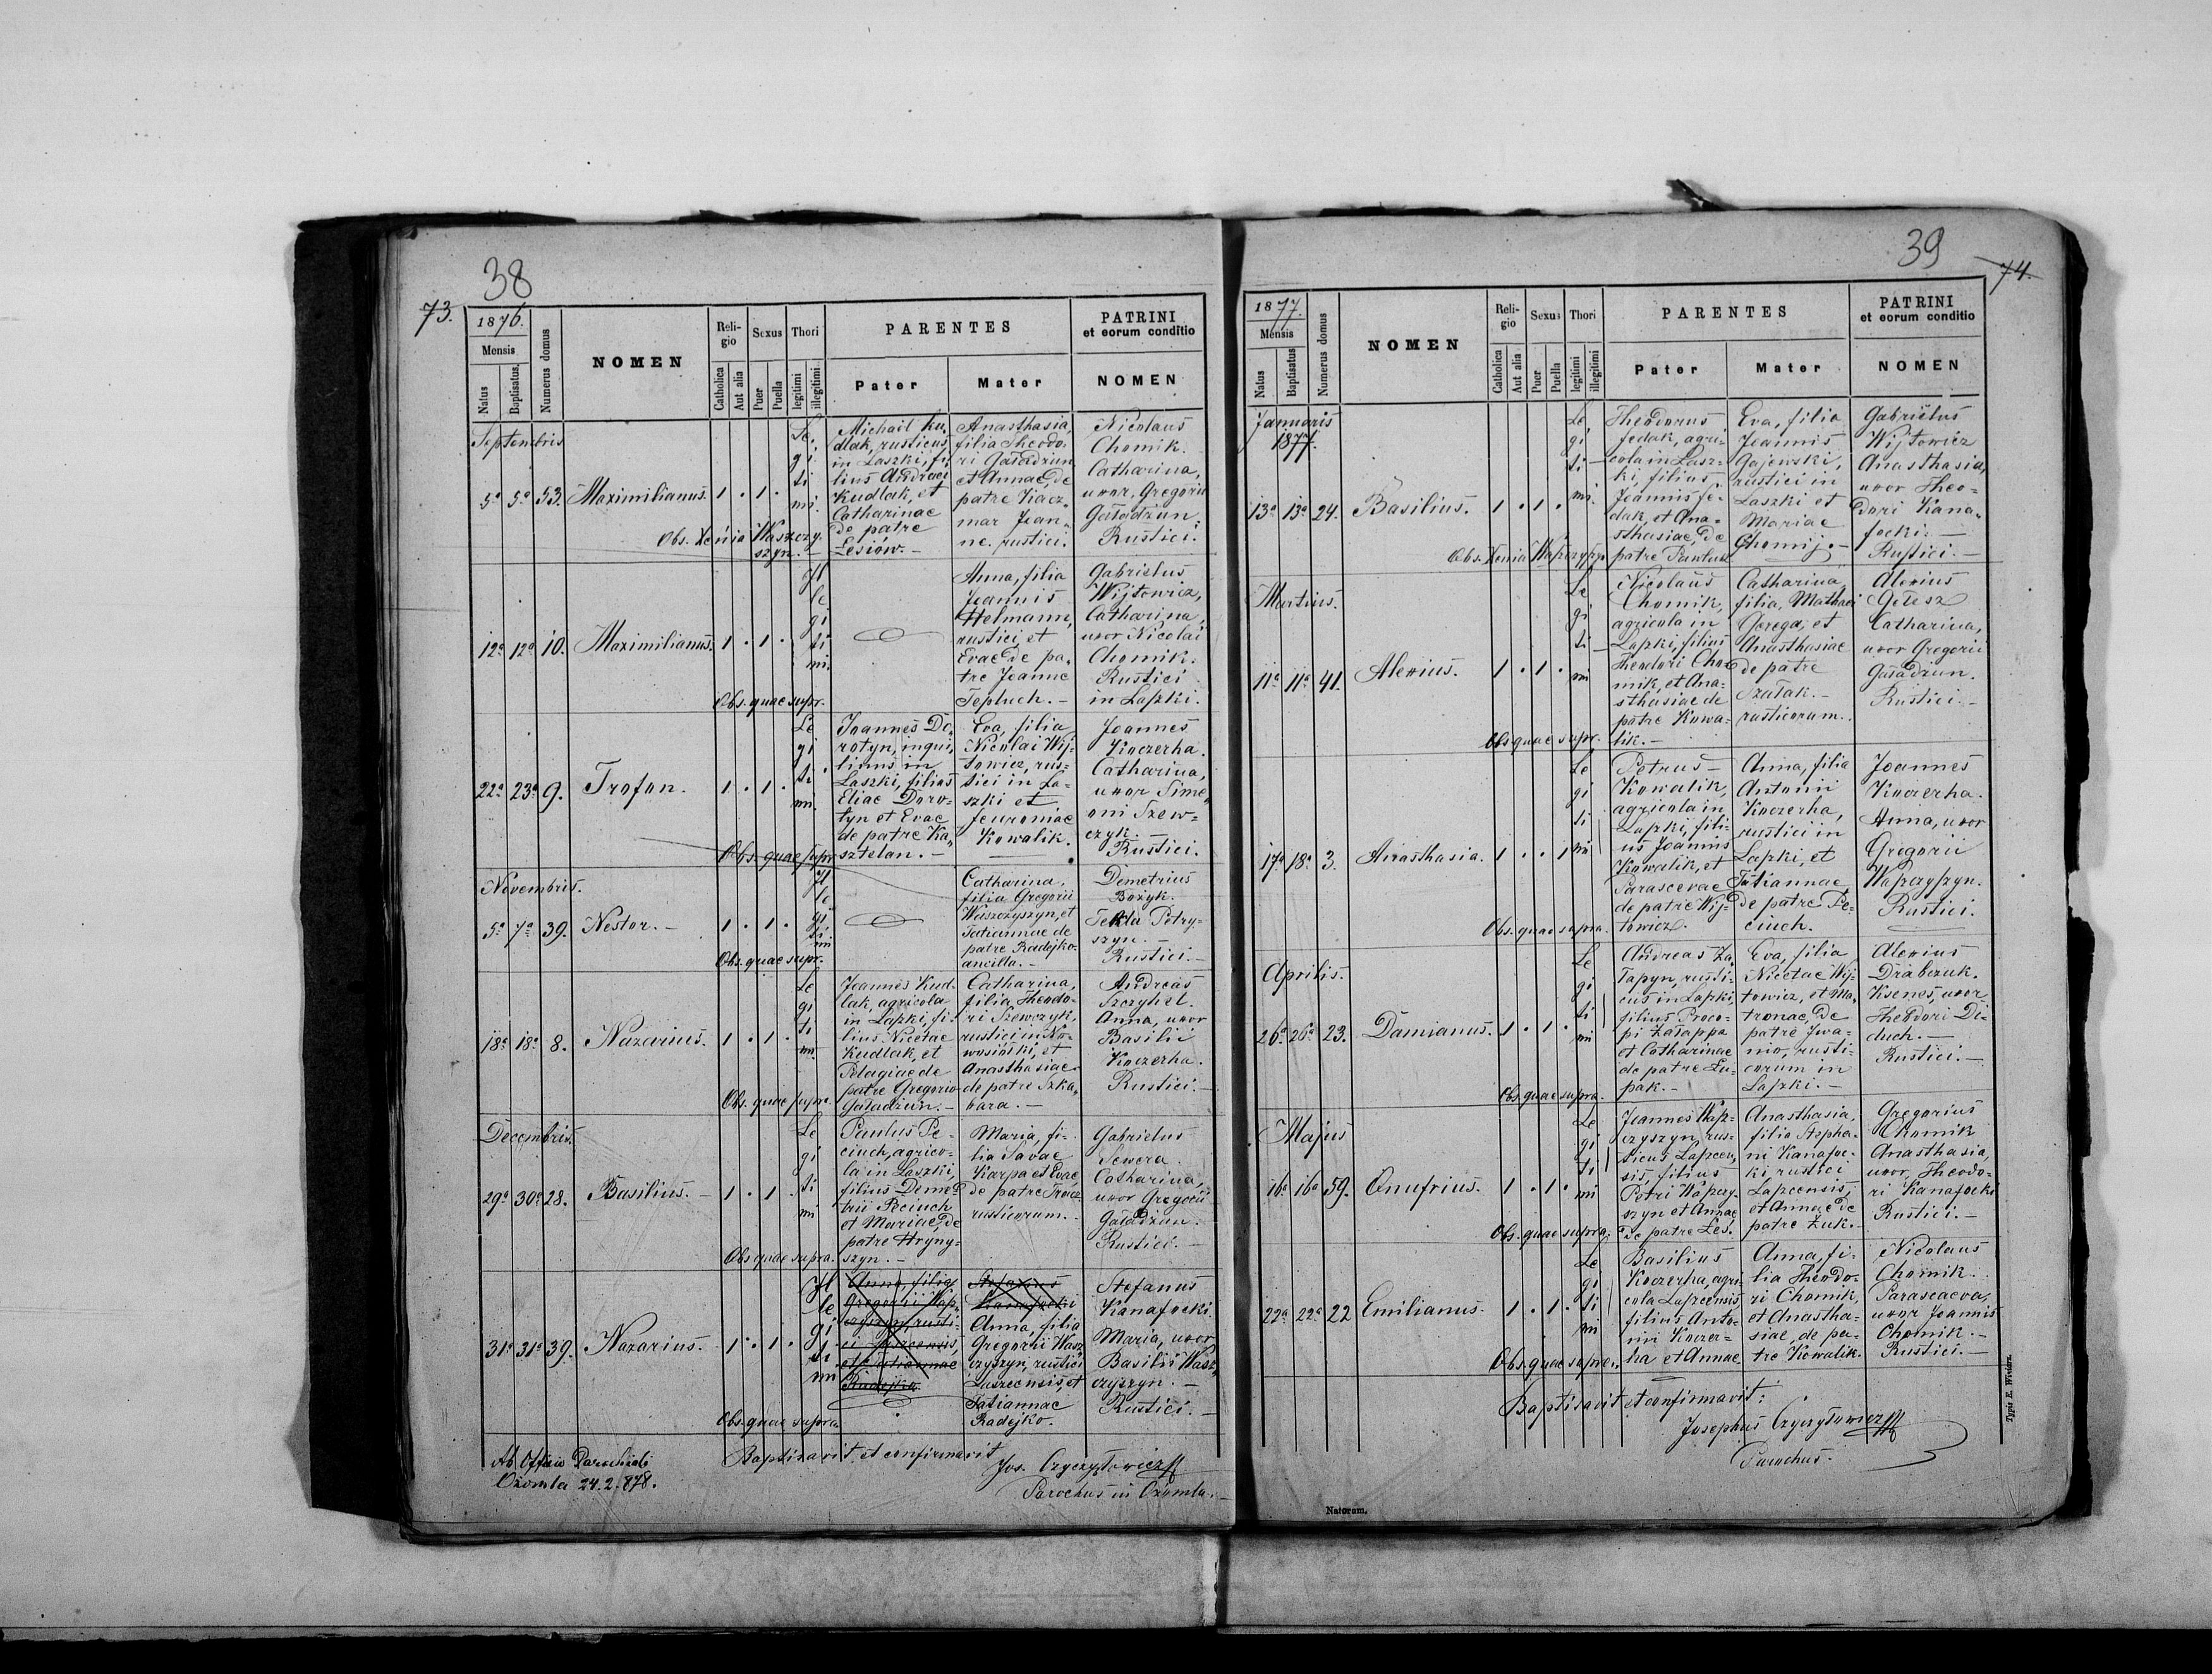 38
73.
1876.
Mensis
Natus
Baptisatus
Numerus domus
NOMEN
Reli-
gio
Catholica
Aut alia
Sexus
Puer
Puella
Thori
legitimi
illegitimi
PARENTES
Pater
Mater
PATRINI
et eorum conditio
NOMEN
Septembris
5a 5a 53. Maximilianus. 1 . 1 .
Le
gi
ti
mi.
Michail Ku-
dlak, rusticus
in Laszki, fi-
lius Andreae
Kudlak, et
Catharinae
de patre
Lesiów. –
Anasthasia,
filia Theodo-
ri Gaładzun
et Annae, de
patre Kacz-
mar Joan-
ne. rustici.
Nicolaus
Chomik.
Catharina,
uxor, Gregorii
Gaładzun.
Rustici.
Obs. Xenia Waszczy-
szyn. –
12a 12a 10. Maximilianus. 1 . 1 .
Il
le
gi
ti
mi.
Anna, filia
Joannis
Helmann,
rustici, et
Evae de pa-
tre Joanne
Tepluch. –
Gabrielus
Wijtowicz,
Catharina,
uxor Nicolai
Chomik.
Rustici
in Laszki.
Obs. quae supr.
22a 23a 9. Trofon. 1 . 1 .
Le
gi
ti
mi.
Joannes Do-
rotyn, inqui-
linus in
Laszki, filius
Eliae Doro-
tyn et Evae
de patre Ka-
sztelan. –
Eva, filia
Nicolai Wij-
towicz, rus-
tici in La-
szki et
Feuroniae
Kowalik.
Joannes
Koczerha.
Catharina,
uxor Sime-
oni Szew-
czyk. –
Rustici.
Obs. quae supr.
Novembris.
5a 7a 39. Nestor. – 1 . 1 .
Il
le
gi
ti
mi
Catharina,
filia Gregorii
Waszczyszyn, et
Tatiannae de
patre Radejko.
ancilla. –
Demetrius
Bożyk.
Tekla Petry-
szyn. –
Rustici. –
Obs. quae supr.
18a 18a 8. Nazarius. 1 . 1 .
Le
gi
ti
mi.
Joannes Kud-
lak, agricola
in Laszki, fi-
lius Nicetae
Kudlak, et
Pelagiae de
patre Gregorio
Gaładzun. –
Catharina,
filia Theodo-
ri Szewczyk,
rustici in No-
wosiółki, et
Anasthasiae
de patre Szka-
bara. –
Andreas
Szczyhel.
Anna, uxor
Basilii
Koczerha.
Rustici. –
Obs. quae supra.
Decembris.
29a 30a 28. Basilius. – 1 . 1 .
Le
gi
ti
mi
Paulus Pe-
ciuch, agrico-
la in Laszki,
filius Deme-
trii Peciuch
et Mariae, de
patre Hryny-
szyn. –
Maria, fi-
lia Savae
Karpa et Evae,
de patre
rusticorum. –
Gabrielus
Sewera.
Catharina,
uxor Gregorii
Gaładzun.
Rustici. –
Obs. quae supra.
31a 31a 39. Nazarius. 1 . 1 .
Il
le
gi
ti
mi
Anna, filia
Gregorii Wasz-
czyszyn, rusti-
ci Laszcensis,
et Tatiannae
Radejko.
Stefanus
Kanafocki
Anna, filia
Gregorii Wasz-
czyszyn, rustici
Laszcensis, et
Tatiannae
Radejko.
Stefanus
Kanafocki.
Maria, uxor
Basilii Wasz-
czyszyn. –
Rustici. –
Obs. quae supra.
Ab Officio Parochiali
Ożomla 24.2.878.
Baptisavit et confirmavit
Jos. Czyczyłowicz
Parochus in Ożomla. –
39
74.
1877.
Mensis
Natus
Baptisatus
Numerus domus
NOMEN
Reli-
gio
Catholica
Aut alia
Sexus
Puer
Puella
Thori
legitimi
illegitimi
PARENTES
Pater
Mater
PATRINI
et eorum conditio
NOMEN
Januaris
1877.
13a 13a 24. Basilius. 1 . 1 .
Le
gi
ti
mi.
Theodorus
Fedak, agri-
cola in Lasz-
ki, filius
Joannis Fe-
dak, et Ana-
sthasiae, de
patre Pawlus
Eva, filia
Joannis
Gajewski,
rustici in
Laszki et
Mariae
Chomij. –
Gabrielus
Wijtowicz
Anasthasia,
uxor Theo-
dori Kana-
focki. –
Rustici. –
Obs. Xenia Waszczyszyn
Martius.
11a 11a 41. Alexius. 1 . 1 .
Le
gi
ti
mi
Nicolaus
Chomik,
agricola in
Laszki, filius
Theodori Cho-
mik, et Ana-
sthasiae de
patre Kowa-
lik. –
Catharina
filia, Mathaei
Gerega, et
Anasthasiae
de patre
Szałak. –
rusticorum.
Alexius
Gełesz
Catharina,
uxor Gregorii
Gaładzun.
Rustici. –
Obs quae supr.
17a 18a 3. Anasthasia. 1 . . 1
Le
gi
ti
mi
Petrus –
Kowalik,
agricola in
Laszki, fili-
us Joannis
Kowalik, et
Parascevae
de patre Wij-
towicz.
Anna, filia
Antonii
Koczerha,
rustici in
Laszki, et
Tatiannae
de patre Pe-
ciuch.
Joannes
Koczerha.
Anna, uxor
Gregorii
Waszczyszyn.
Rustici.
Obs. quae supra.
Aprilis.
26a 26a 23. Damianus. 1 . 1 .
Le
gi
ti
mi
Andreas Za-
łapyn, rusti-
cus in Laszki,
filius Proco-
pi Załappa
et Catharinae
de patre Lu-
pak. –
Eva, filia
Nicetae Wij-
towicz, et Ma-
tronae, de
patre Iwa-
nio, rusti-
corum in
Laszki. –
Alexius
Drabczuk.
Ksenes, uxor
Theodori Di-
duch. –
Rustici. –
Obs. quae supra.
Majus
16a 16a 59. Onufrius. 1 . 1 .
Le
gi
ti
mi
Joannes Wasz-
czyszyn, rus-
ticus Laszcen-
sis, filius
Petri Waszczy-
szyn et Annae
de patre Les.
Anasthasia,
filia Stepha-
ni Kanafoc-
ki rustici
Laszcensis,
et Annae de
patre Żuk. –
Gregorius
Chomik
Anasthasia,
uxor, Theodo-
ri Kanafocki
Rustici. –
Obs. quae supra.
22a 22a 22 Emilianus. 1 . 1 .
Le
gi
ti
mi
Basilius
Koczerha, agri-
cola Laszcensis
filius Anto-
nii Koczer-
ha et Annae,
Anna, fi-
lia Theodo-
ri Chomik,
et Anastha-
siae, de pa-
tre Kowalik.
Nicolaus
Chomik.
Parascaeva,
uxor Joannis
Chomik. –
Rustici. –
Obs. quae supra.
Baptisavit et confirmavit:
Josephus Czyczyłowicz
Parochus.
Typis E. Winiarz.
Natorum.